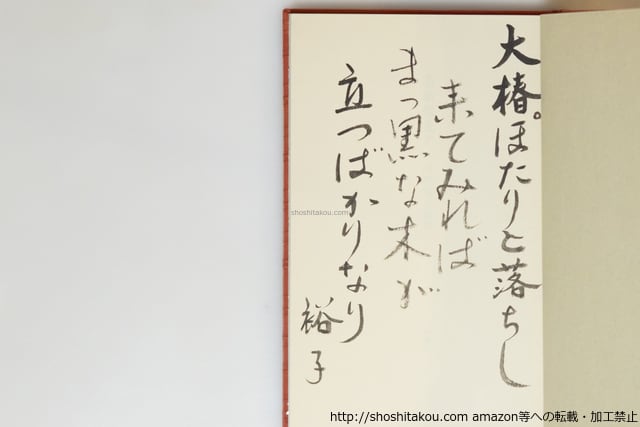 大椿。ほたりと落ちし
来てみれば
まつ黒な木が
立つばかりなり
裕子
shoshitakou.com
http://shoshitakou.com amazon等への転載・加工禁止